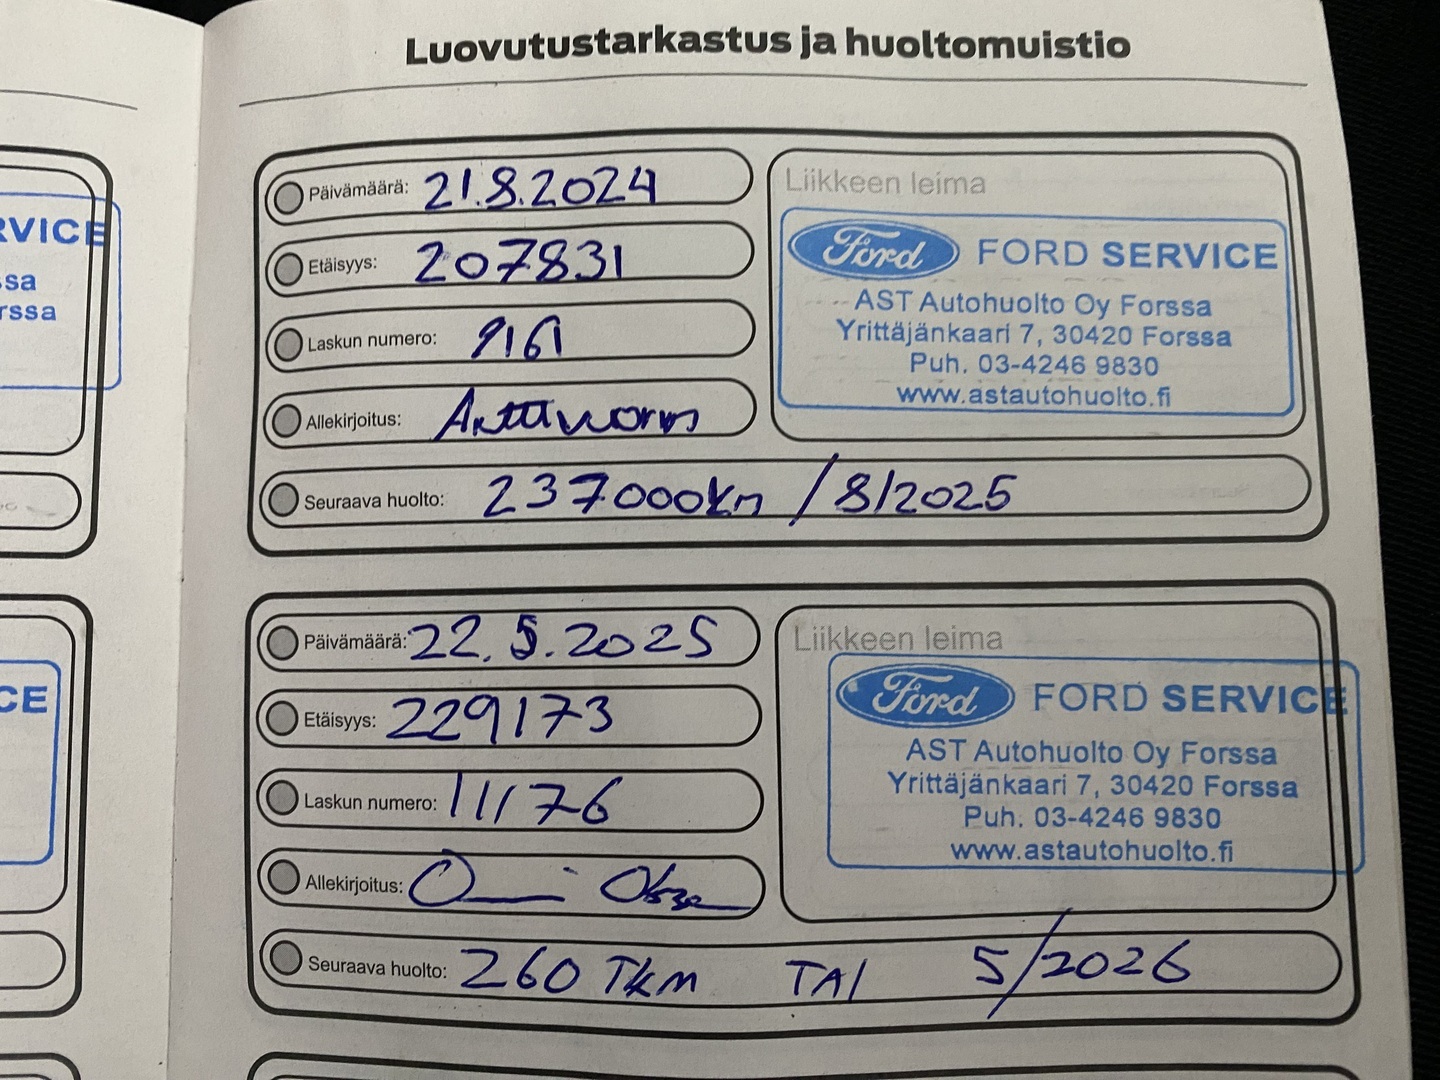 Luovutustarkastus ja huoltomuistio
RVICE
ssa
rssa
CE
Päivämäärä: 21.8.2024
Etäisyys: 207831
Laskun numero: 9161
Allekirjoitus:
Seuraava huolto: 237000km / 8/2025
Liikkeen leima
Ford FORD SERVICE
AST Autohuolto Oy Forssa
Yrittäjänkaari 7, 30420 Forssa
Puh. 03-4246 9830
www.astautohuolto.fi
Päivämäärä: 22.5.2025
Etäisyys: 229173
Laskun numero: 11176
Allekirjoitus:
Seuraava huolto: 260 TKM TAI 5/2026
Liikkeen leima
Ford FORD SERVICE
AST Autohuolto Oy Forssa
Yrittäjänkaari 7, 30420 Forssa
Puh. 03-4246 9830
www.astautohuolto.fi